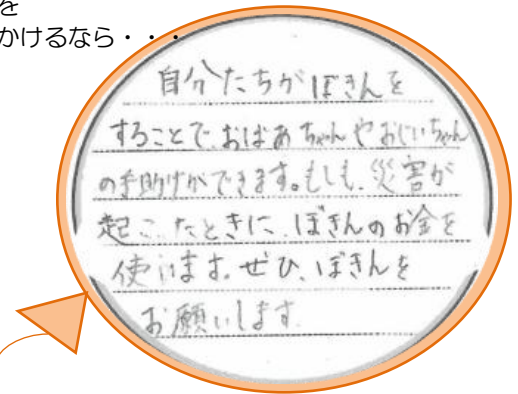 を
かけるなら・・・
自分たちがぼきんを
することで、おばあちゃんやおじいちゃん
の手助けができます。もしも、災害が
起こったときに、ぼきんのお金を
使います。ぜひ、ぼきんを
お願いします。